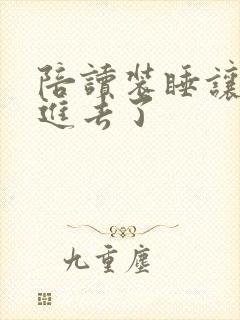 陪讀裝睡讓
進去了
九重塵